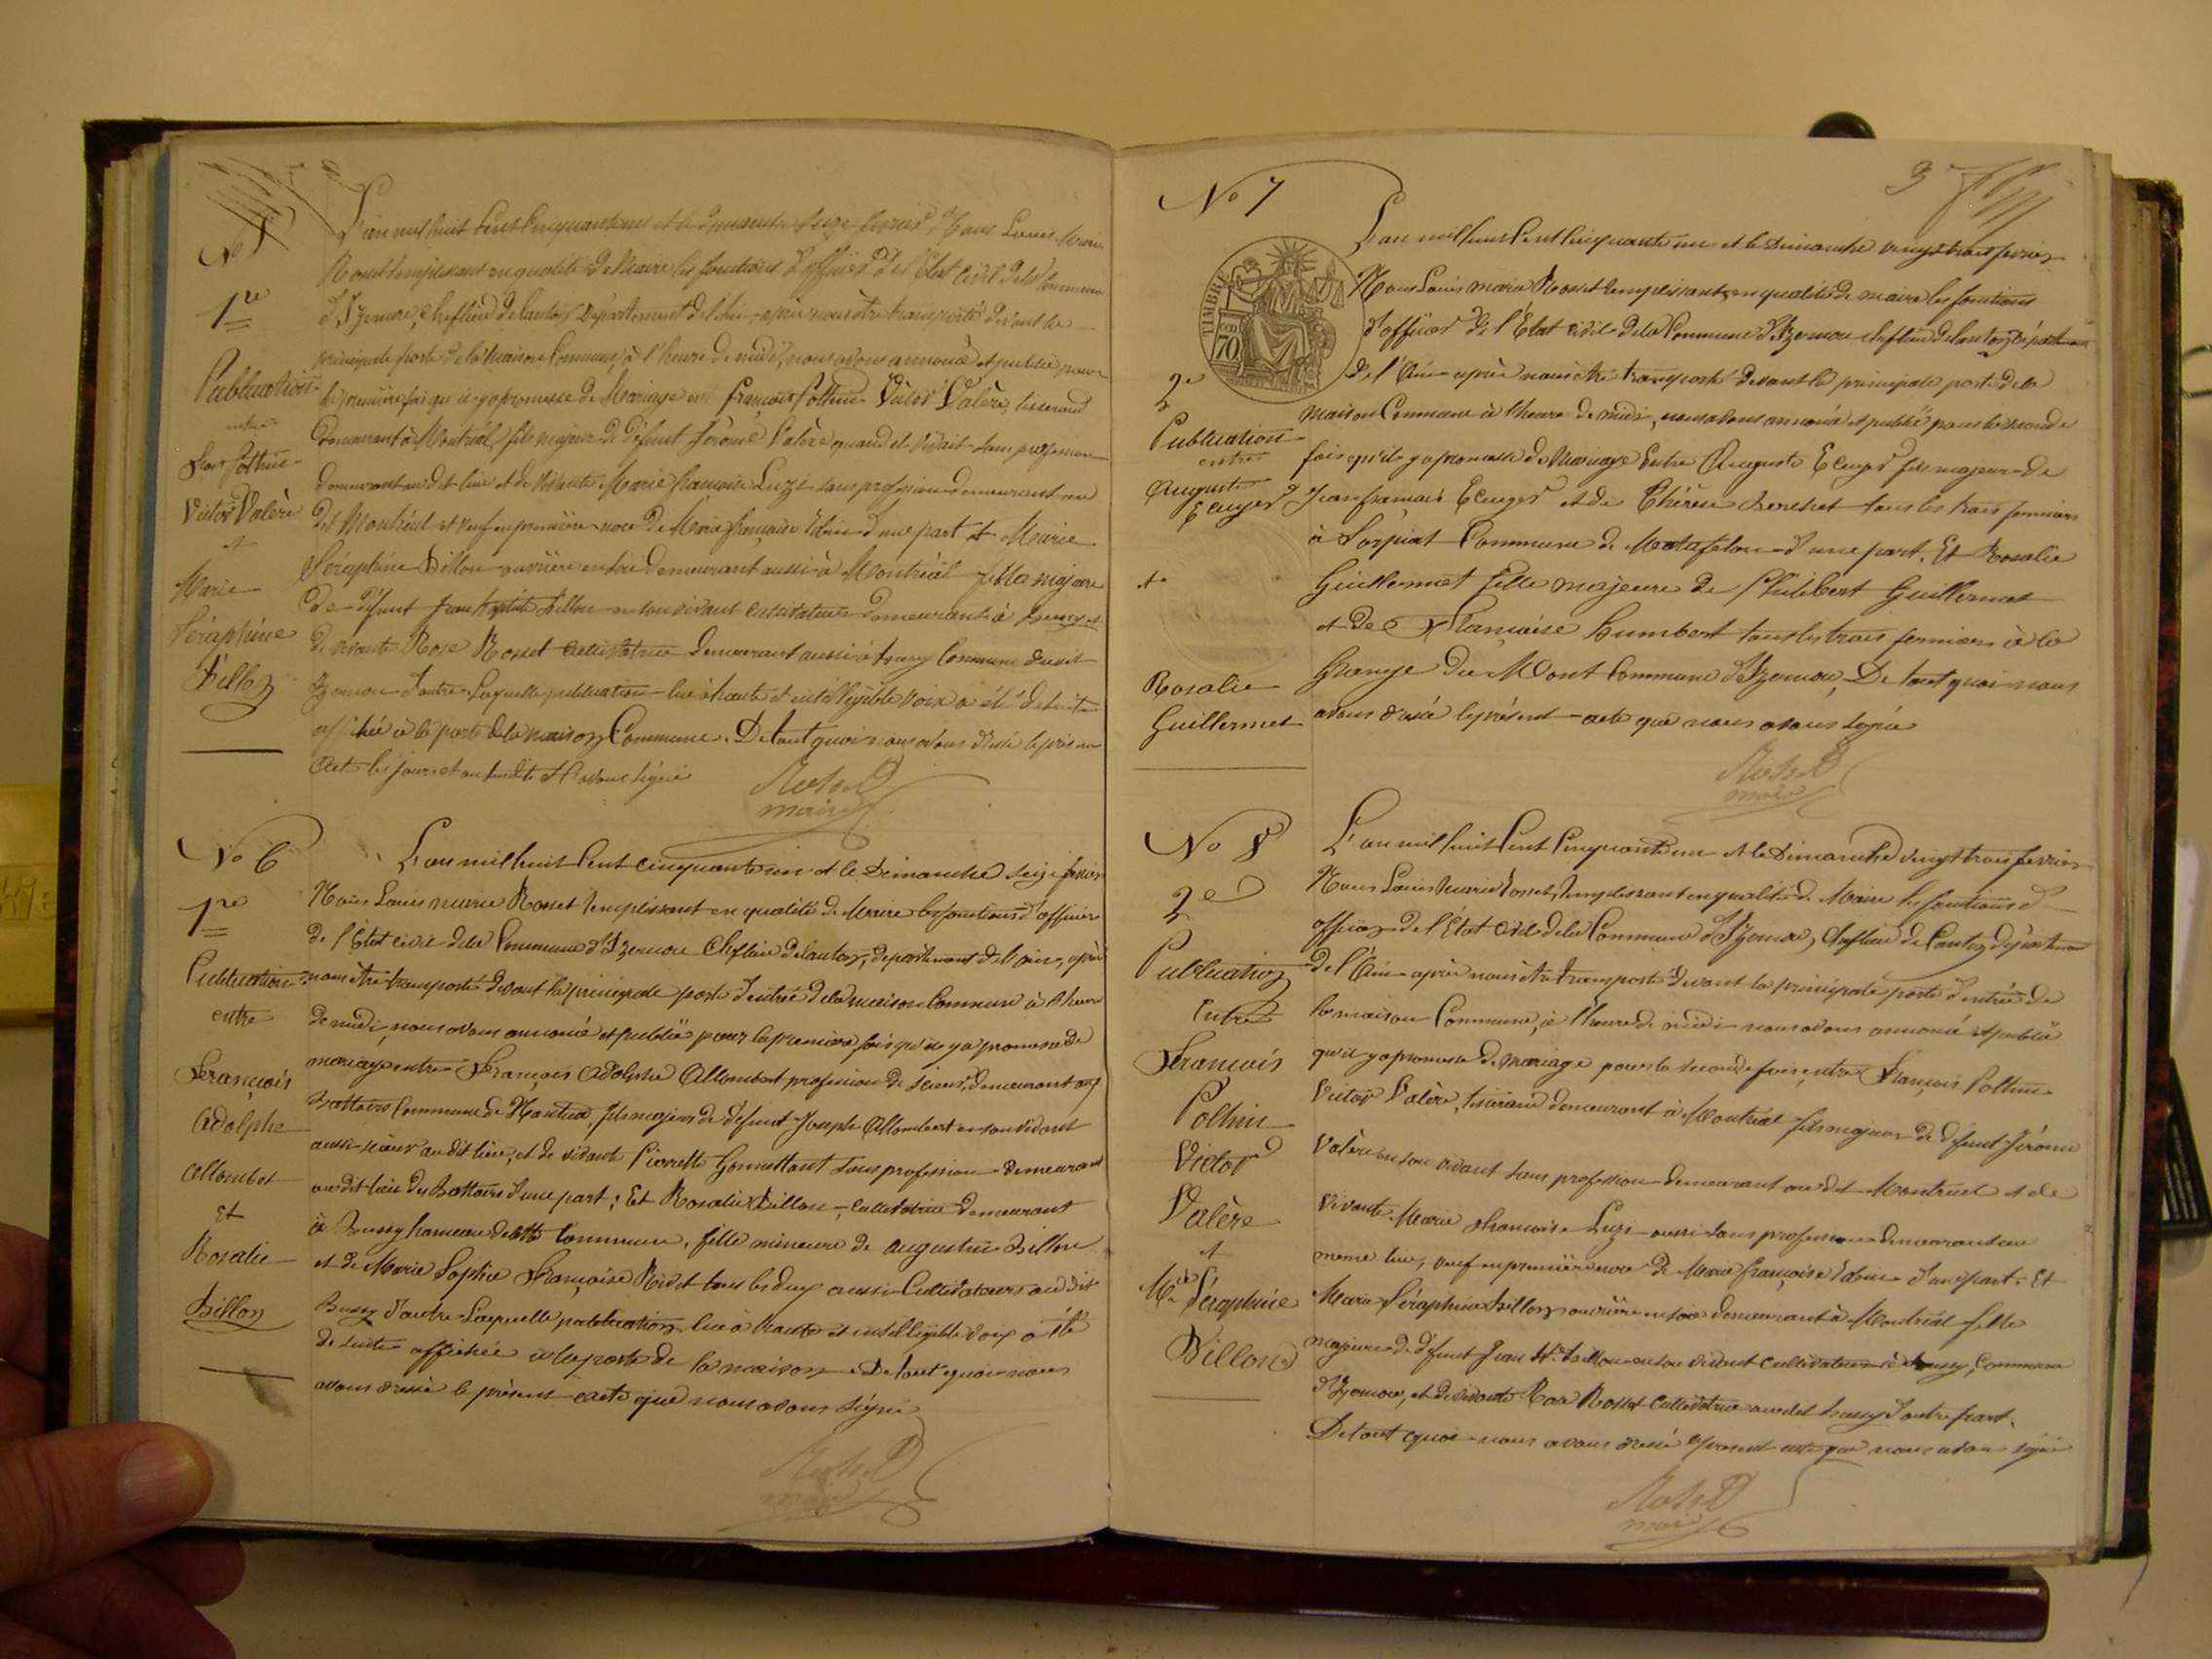 No 5
1re
Publication
entre
Fçois Pothin
Victor Valère
et
Marie
Séraphine
Billon
L'an mil huit Cent Cinquante un et le Dimanche Seize fevrier, Nous Louis Marie
Rosset remplissant en qualité de Maire les fonctions d'officier de l'Etat Civil de la Commune
d'Izernore, Cheflieu de Canton Département de l'Ain, après nous être transporté devant la
principale porte de la Maison Commune, à l'heure de midi, nous avons annoncé et publié pour
la première fois qu'il y a promesse de Mariage entre François Pothin Victor Valère, tisserand
Demeurant à Montréal, fils majeur de défunt Jérôme Valère quand il vivait sans profession
demeurant au dit lieu et de vivante Marie françoise Luzi sans profession demeurant au
dit Montréal et veuf en première noce de Marie françoise d'une part et Marie
Séraphine Billon ouvrière en soie demeurant aussi à Montréal fille majeure
de défunt Jean Baptiste Billon en son vivant cultivateur demeurant à Bussy et
de vivante Rose Rosset Cultivatrice Demeurant aussi à Bussy Commune dudit
Izernore d'autre. Laquelle publication lue à haute et intelligible voix a été de suite
affichée à la porte de la maison Commune. De tout quoi nous avons dressé le présent
Acte les jour et an susdits et l'avons signé
Rosset
maire
No 6
1re
Publication
entre
François
Adolphe
Allombet
Et
Rosalie
Billon
L'an mil huit Cent cinquante un et le Dimanche seize fevrier
Nous Louis marie Rosset remplissant en qualité de Maire les fonctions d'officier
de l'Etat civil de la Commune d'Izernore Cheflieu de Canton, département de l'ain, après
nous être transporté devant la principale porte d'entrée de la maison Commune à l'heure
de midi, nous avons annoncé et publié pour la première fois qu'il y a promesse de
mariage entre François Adolphe Allombert profession de scieur, demeurant aux
Battoirs Commune de Nantua, fils majeur de défunt Joseph Allombert en son vivant
aussi scieur au dit lieu, et de vivante Pierrette Gonnettant sans profession demeurant
audit lieu des Battoirs d'une part; Et Rosalie Billon, Cultivatrice demeurant
à Bussy hameau de cette Commune, fille mineure de Augustin Billon
et de Marie Sophie Françoise Rivet tous les deux aussi Cultivateurs au dit
Bussy d'autre Laquelle publication lue à haute et intelligible voix a été
de suite affichée à la porte de la maison. De tout quoi nous
avons dressé le présent acte que nous avons signé
Rosset
maire
3
No 7
TIMBRE
70
2e
Publication
entre
Auguste
Ecuyer
et
Rosalie
Guillermet
L'an mil huit Cent Cinquante un et le Dimanche vingt trois fevrier
Nous Louis marie Rosset remplissant en qualité de maire les fonctions
d'officier de l'État civil de la Commune d'Izernore cheflieu de Canton Département
de l'Ain après nous être transporté devant la principale porte de la
maison Commune à l'heure de midi, nous avons annoncé et publié pour la seconde
fois qu'il y a promesse de Mariage Entre Auguste Ecuyer fils majeur de
Jean françois Ecuyer et de Thérèse Berchet tous les trois fermiers
à Sorpiat Commune de Matafelon d'une part. Et Rosalie
Guillermet fille majeure de Philibert Guillermet
et de Françoise humbert tous les trois fermiers à la
Grange du Mont Commune d'Izernore, De tout quoi nous
avons dressé le présent acte que nous avons signé
Rosset
maire
No 8
2e
Publication
Entre
François
Pothin
Victor
Valère
et
Mie Séraphine
Billon
L'an mil huit Cent Cinquante un et le Dimanche vingt trois fevrier
Nous Louis Marie Rosset, Remplissant en qualité de Maire les fonctions d'
officier de l'État Civil de la Commune d'Izernore, Cheflieu de Canton département
de l'Ain après nous être transporté devant la principale porte d'entrée de
la maison Commune, à l'heure de midi nous avons annoncé et publié
qu'il y a promesse de mariage pour la seconde fois entre François Pothin
Victor Valère, tisserand demeurant à Montréal fils majeur de défunt Jérôme
Valère en son vivant sans profession demeurant au dit Montréal et de
vivante Marie Françoise Luzi aussi sans profession demeurant au
meme lieu, veuf en première noce de Marie françoise d'une part. Et
Marie Séraphine Billon ouvrière en soie demeurant à Montréal fille
majeure de défunt Jean Bte Billon en son vivant cultivateur à Bussy, Commune
d'Izernore, et de vivante Rose Rosset Cultivatrice audit bussy d'autre part.
De tout quoi nous avons dressé le présent acte que nous avons signé
Rosset
maire